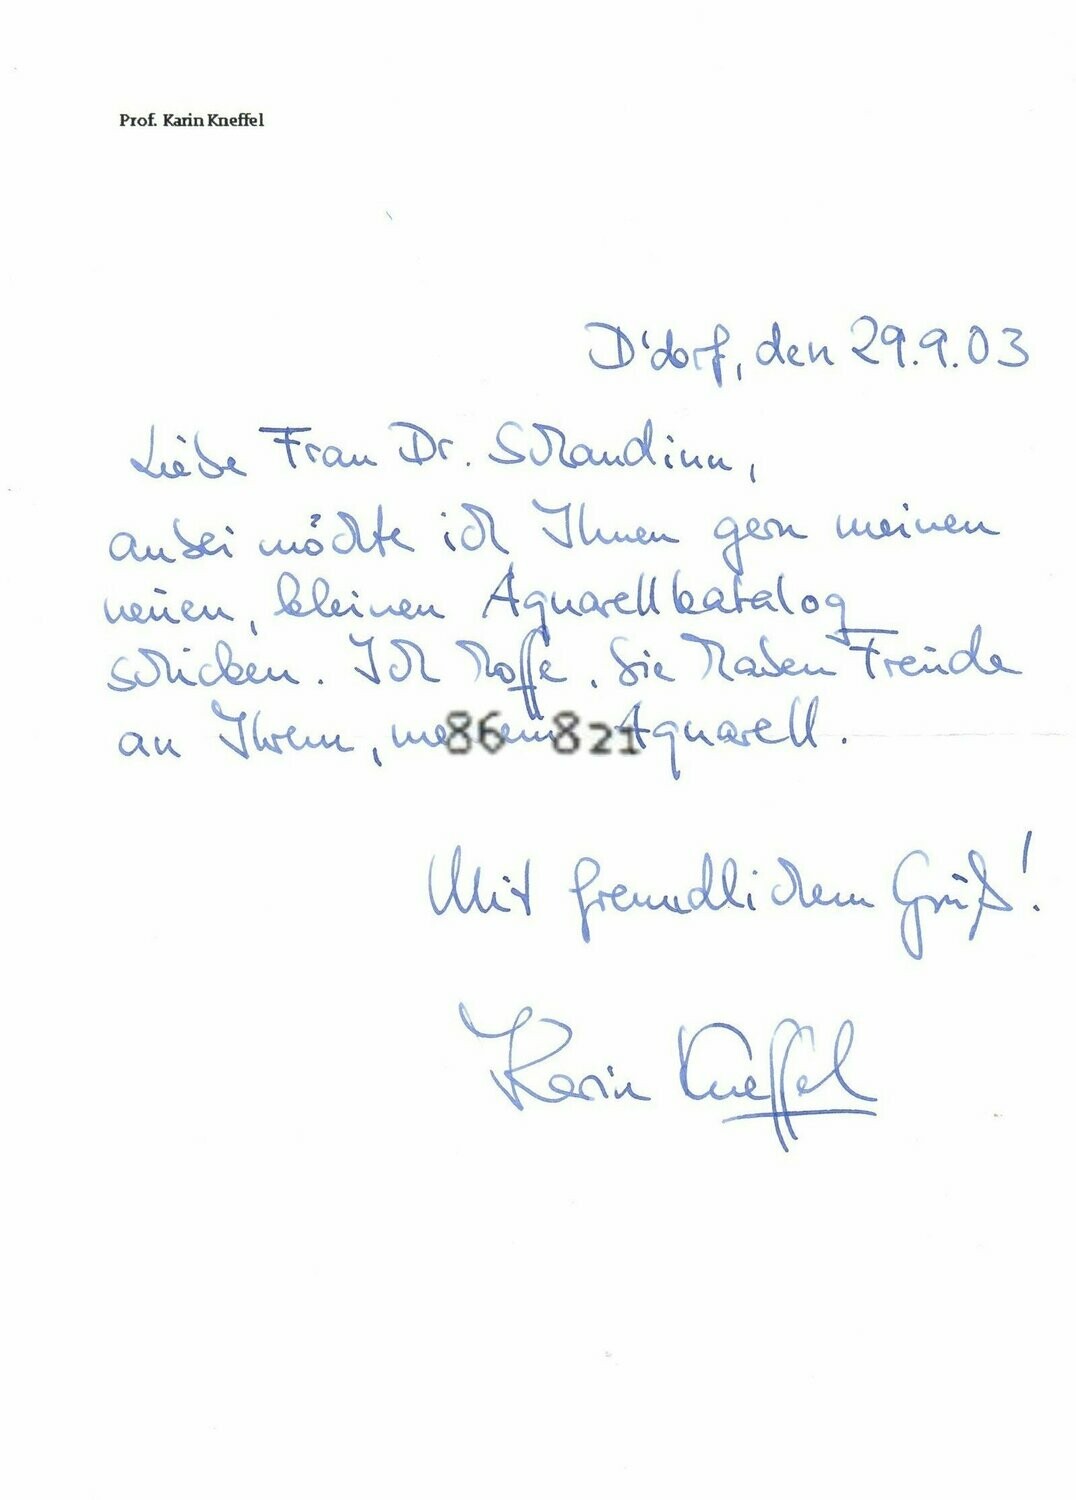 Prof. Karin Kneffel
D'dorf, den 29.9.03
Liebe Frau Dr. Schandinn,
anbei möchte ich Ihnen gern meinen
neuen, kleinen Aquarellkatalog
schicken. Ich hoffe, Sie haben Freude
an Ihrem, meinem Aquarell.
86 821
Mit freundlichem Gruß!
Karin Kneffel